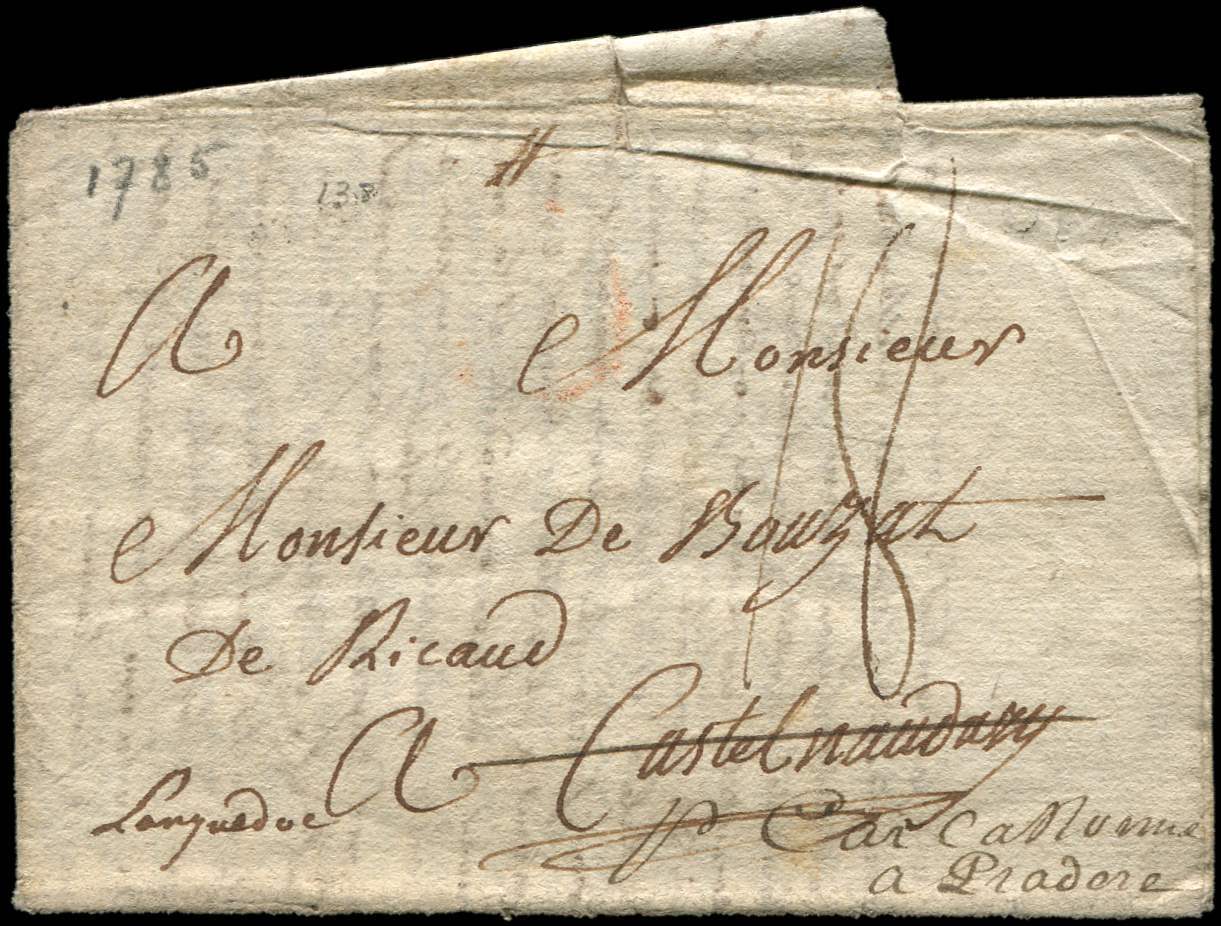 1785
138
A Monsieur
18
Monsieur De Bouzat
De Ricaud
A Castelnaudary
Languedoc
pd Carcassonne
a Pradere